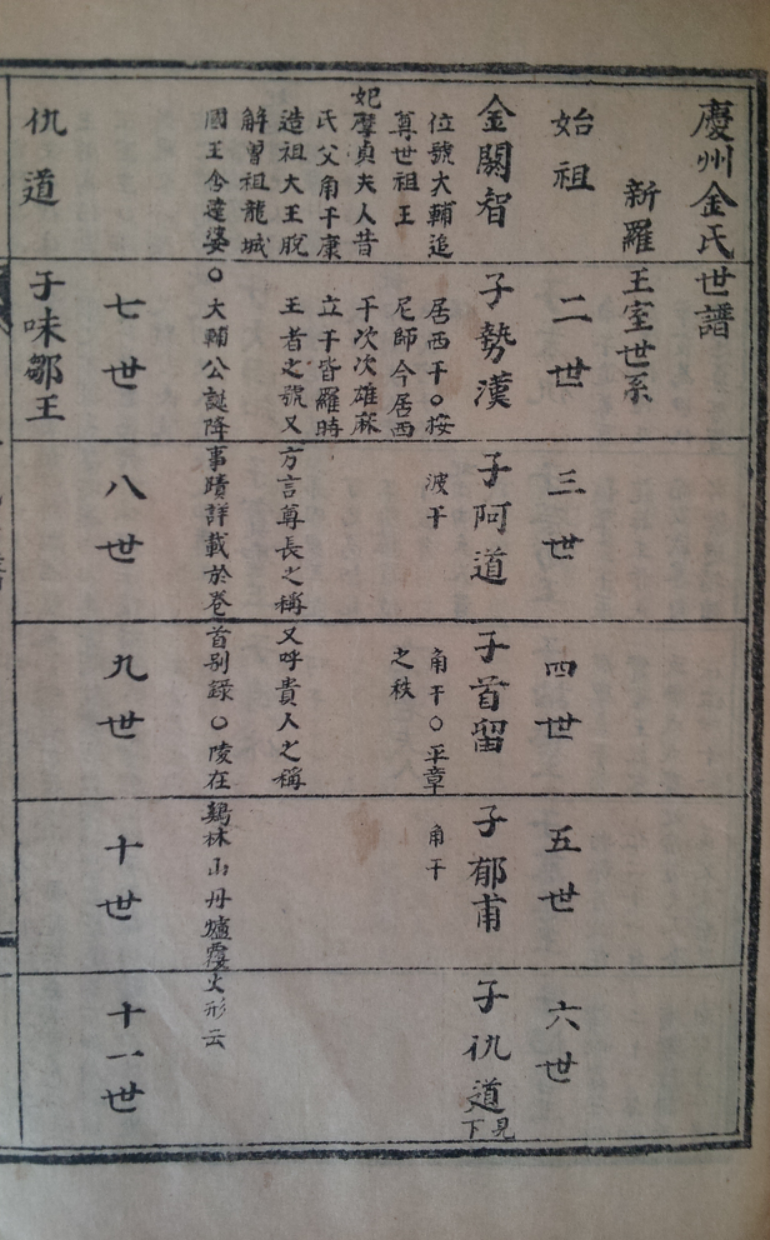 慶州金氏世譜
新羅王室世系
始祖 二世 三世 四世 五世 六世
金閼智 子勢漢 子阿道 子首留 子郁甫 子仇道 見下
位號大輔追 居西干○按 波干 角干○平章 角干
尊世祖王 尼師今居西 之秩
妃摩貞夫人昔 干次次雄麻
氏父角干康 立干皆羅時
造祖大王脫 王者之號又方言尊長之稱又呼貴人之稱
解曾祖龍城
國王含達婆○大輔公誕降事蹟詳載於卷首别錄○陵在鷄林山丹爐覆火形云
七世 八世 九世 十世 十一世
仇道 子味鄒王